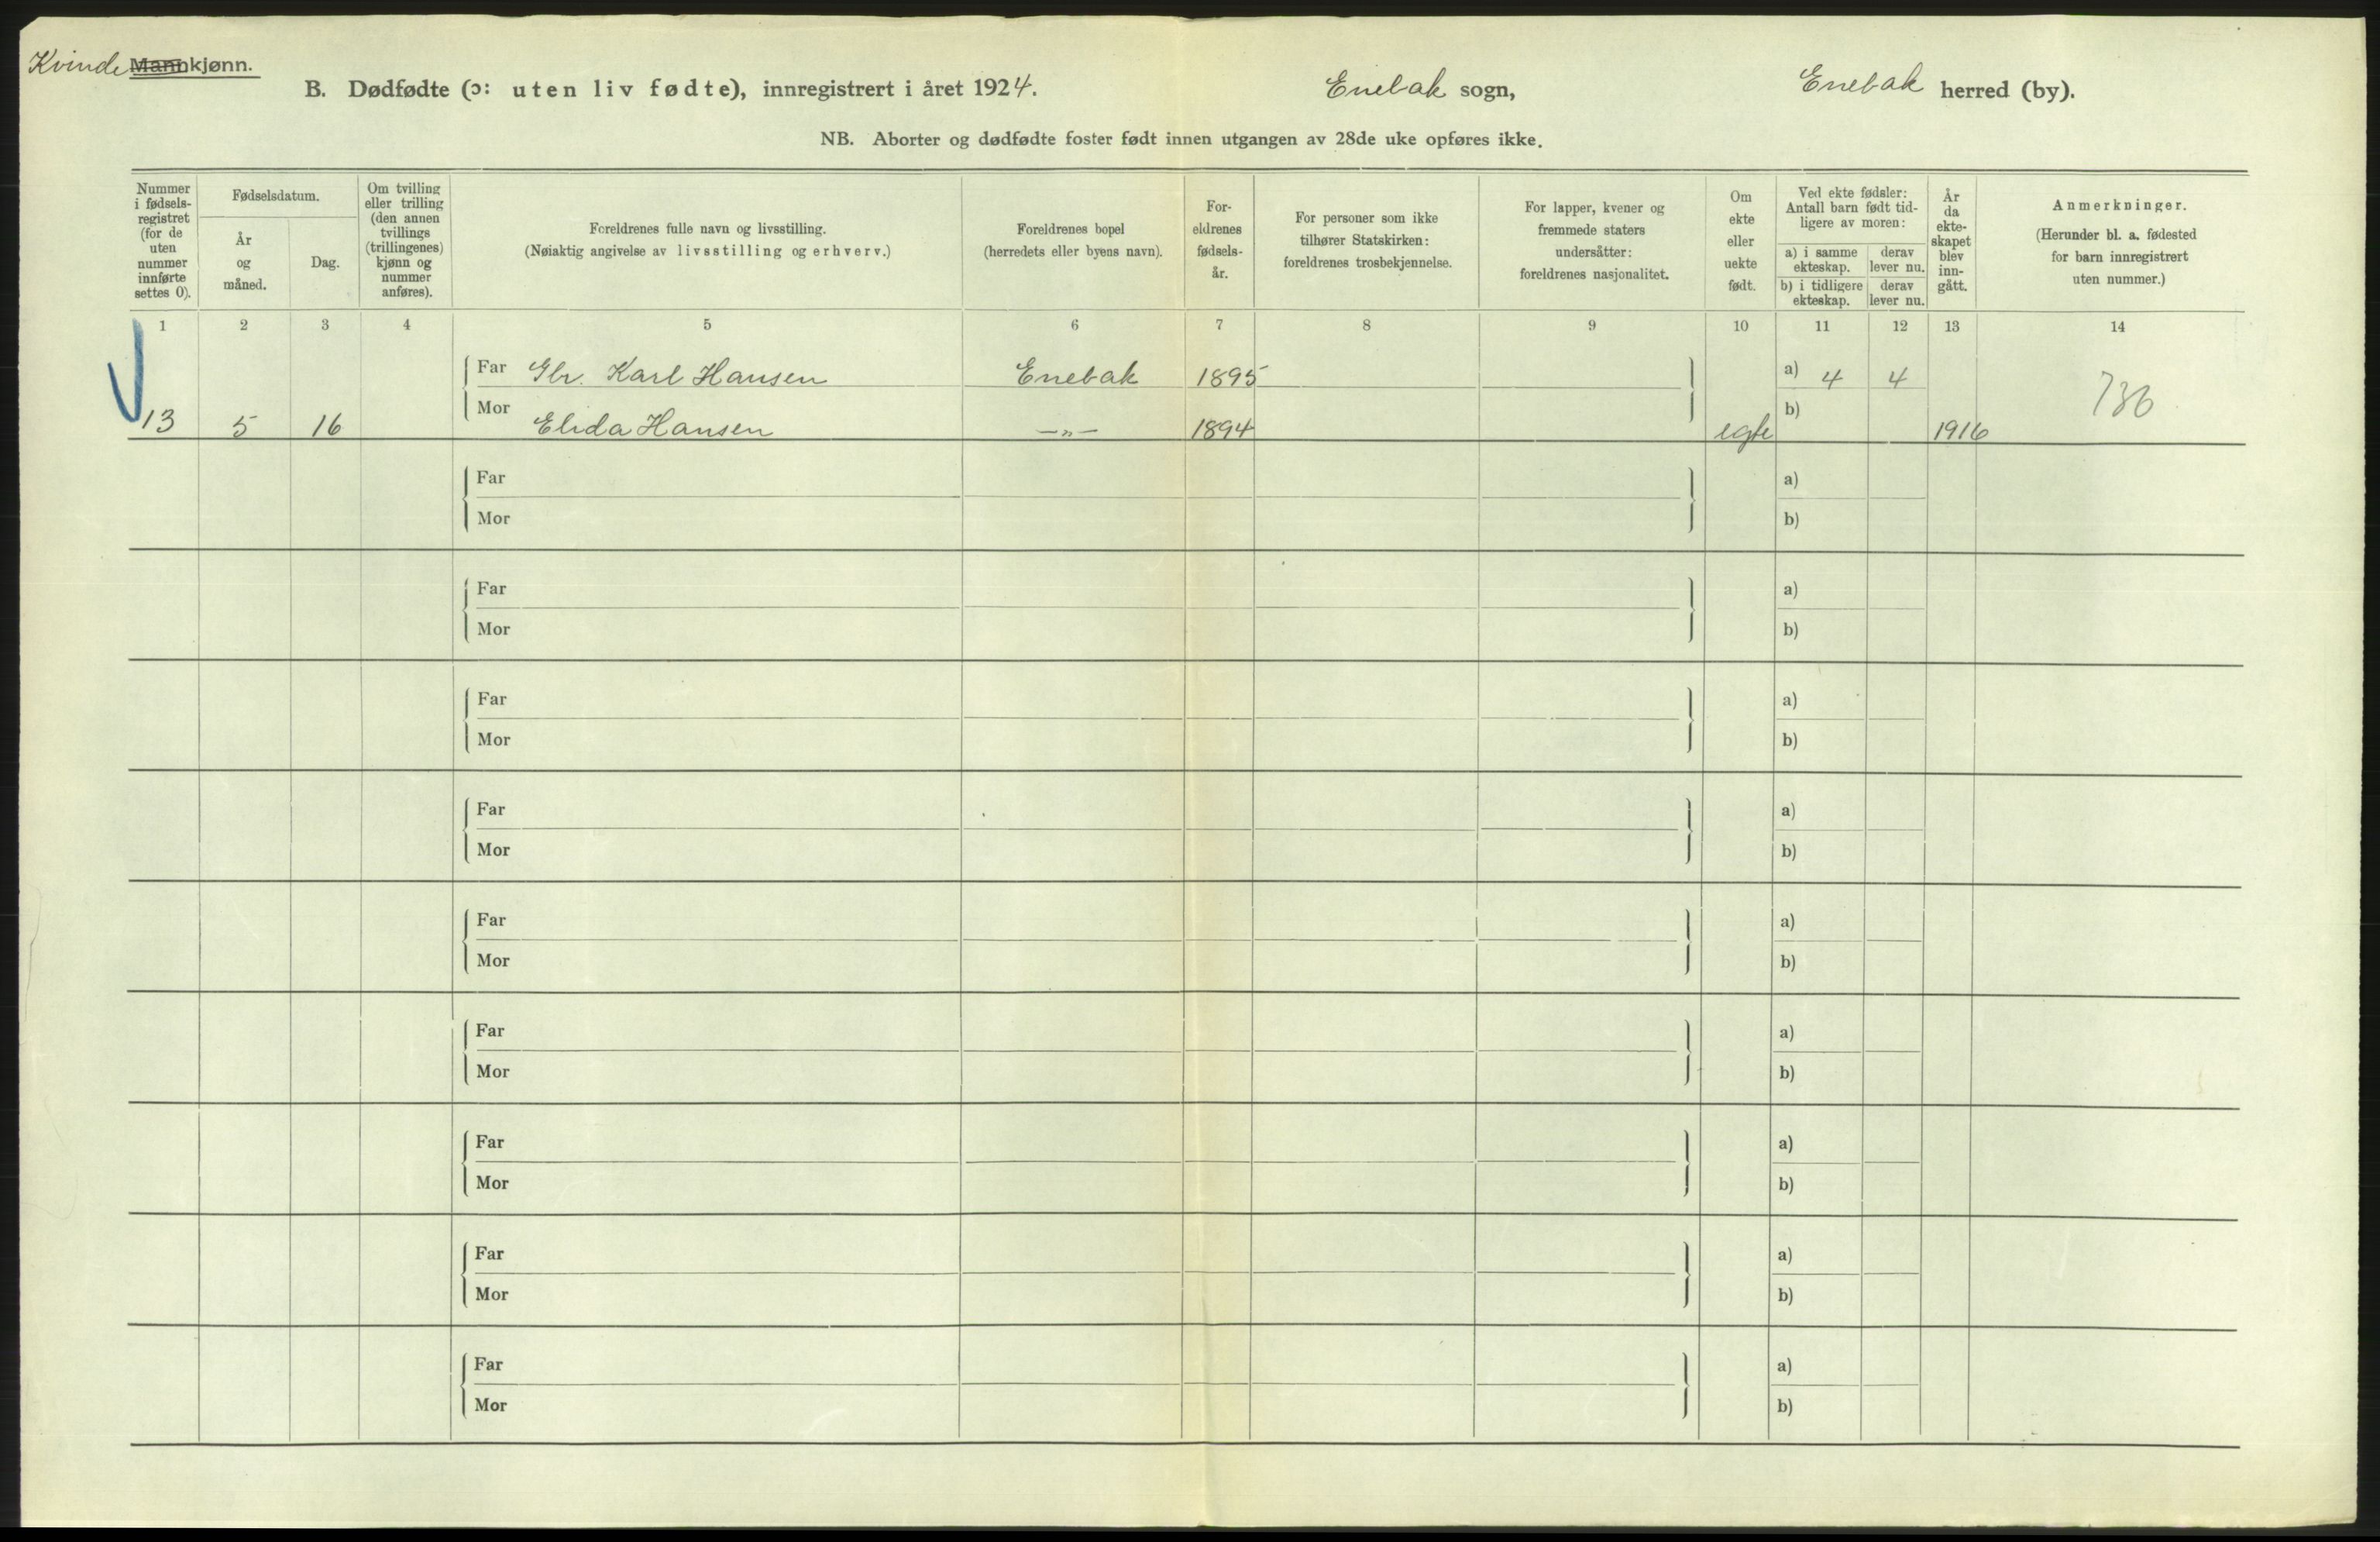 Kvinde Mannkjønn.
B. Dødfødte (ɔ: uten liv fødte), innregistrert i året 1924. Enebak sogn, Enebak herred (by).
NB. Aborter og dødfødte foster født innen utgangen av 28de uke opføres ikke.
Nummer i fødsels-registret (for de uten nummer innførte settes 0).
Fødselsdatum.
År og måned.
Dag.
Om tvilling eller trilling (den annen tvillings (trillingenes) kjønn og nummer anføres).
Foreldrenes fulle navn og livsstilling.
(Nøiaktig angivelse av livsstilling og erhverv.)
Foreldrenes bopel
(herredets eller byens navn).
For-eldrenes fødsels-år.
For personer som ikke tilhører Statskirken: foreldrenes trosbekjennelse.
For lapper, kvener og fremmede staters undersåtter: foreldrenes nasjonalitet.
Om ekte eller uekte født.
Ved ekte fødsler: Antall barn født tid-ligere av moren:
a) i samme ekteskap.
derav lever nu.
b) i tidligere ekteskap.
derav lever nu.
År da ekte-skapet blev inn-gått.
Anmerkninger.
(Herunder bl. a. fødested for barn innregistrert uten nummer.)
1 2 3 4 5 6 7 8 9 10 11 12 13 14
Far Gbr. Karl Hansen Enebak 1895 a) 4 4 736
13 5 16 Mor Elida Hansen —„— 1894 egte b) 1916
Far a)
Mor b)
Far a)
Mor b)
Far a)
Mor b)
Far a)
Mor b)
Far a)
Mor b)
Far a)
Mor b)
Far a)
Mor b)
Far a)
Mor b)
Far a)
Mor b)